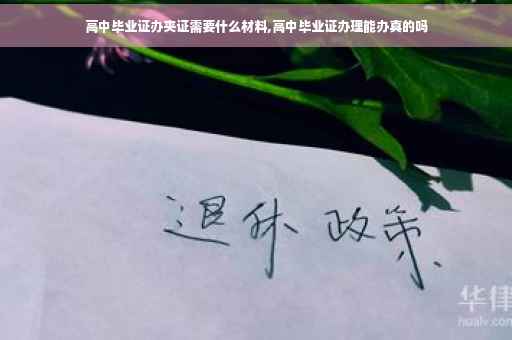 高中毕业证办夹证需要什么材料,高中毕业证办理能办真的吗
退休 政策
华律
hualv.com